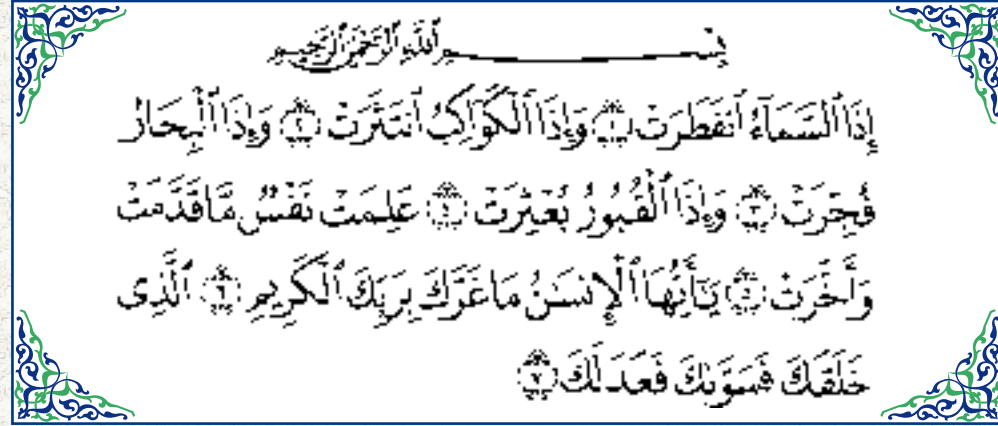 بِسْمِ ٱللَّهِ ٱلرَّحْمَٰنِ ٱلرَّحِيمِ
إِذَا ٱلسَّمَآءُ ٱنفَطَرَتْ ١ وَإِذَا ٱلْكَوَاكِبُ ٱنتَثَرَتْ ٢ وَإِذَا ٱلْبِحَارُ
فُجِّرَتْ ٣ وَإِذَا ٱلْقُبُورُ بُعْثِرَتْ ٤ عَلِمَتْ نَفْسٌ مَّا قَدَّمَتْ
وَأَخَّرَتْ ٥ يَٰٓأَيُّهَا ٱلْإِنسَٰنُ مَا غَرَّكَ بِرَبِّكَ ٱلْكَرِيمِ ٦ ٱلَّذِى
خَلَقَكَ فَسَوَّىٰكَ فَعَدَلَكَ ٧